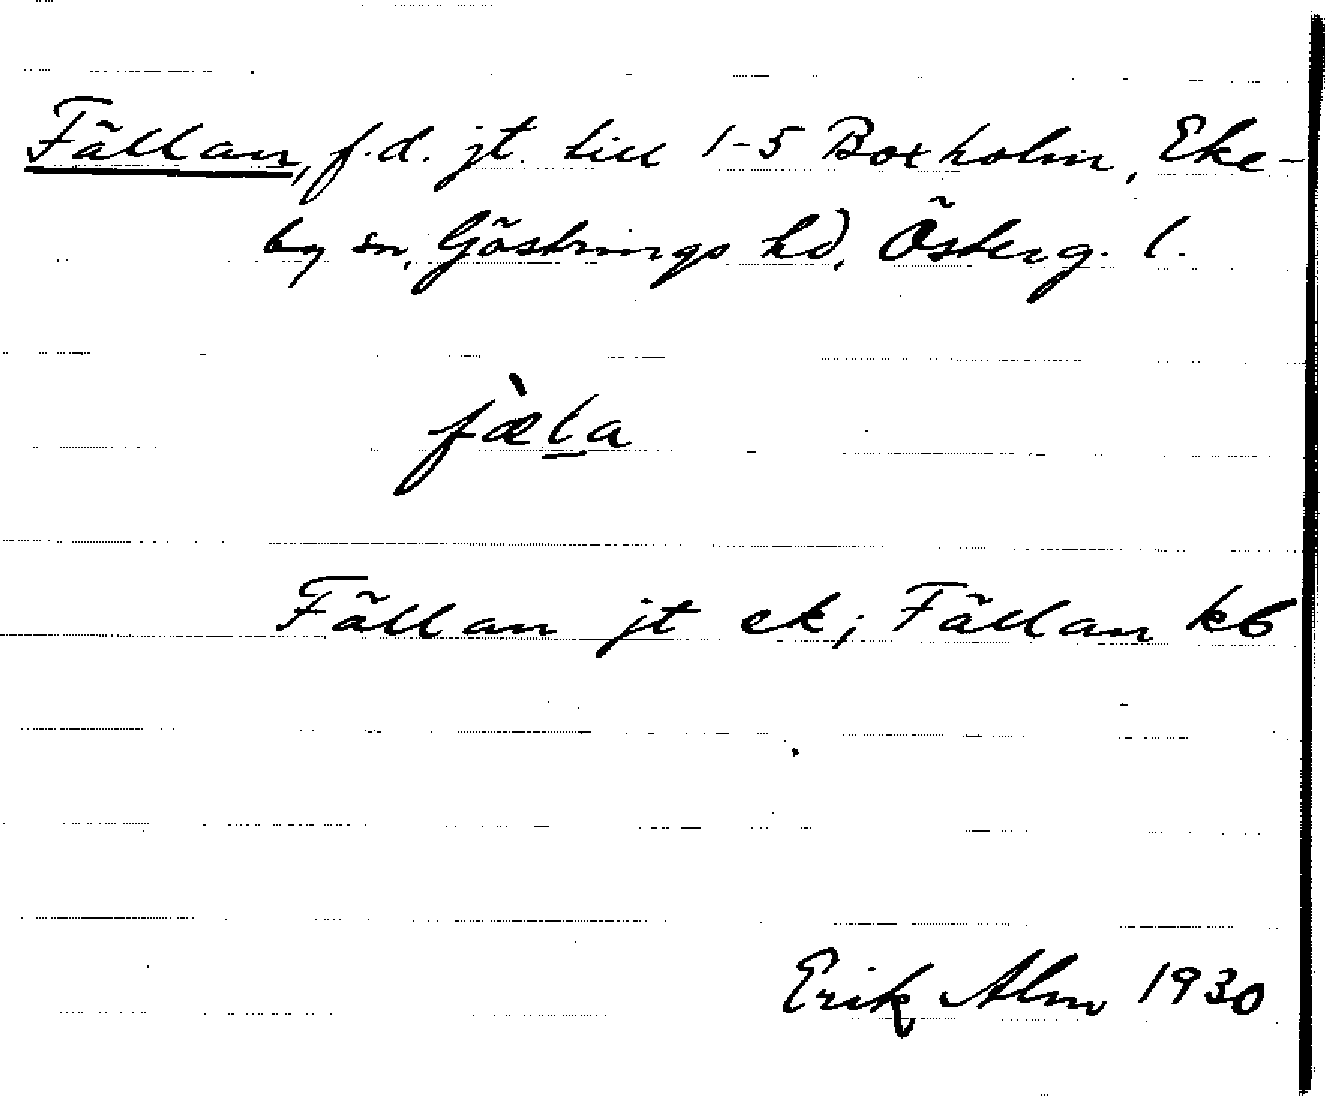 Fällan, f.d. jt. till 1-5 Boxholm, Eke-
by sn, Göstrings hd, Österg. l.
fæ̀l̲a
Fällan jt ek; Fällan kb
Erik Alm 1930